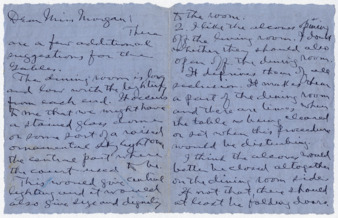 Dear Miss Morgan:
There
are a few additional
suggestions for the
Gables.
The dining room is long
and low with the lighting
from each end. It occurs
to me that we might have
a stained glass dome
or some sort of a raised
ornamental skylight on
the central part where
the court used to be.
This would give central
lighting and it would
also give size and dignity
to the room.
I like the alcoves opening
off the living room. I doubt
whether they should also
open off the dining room.
It deprives them of all
seclusion. It makes them
a part of the dining room
and there are times when
the table is being cleared
or set when this procedure
would be disturbing.
I think the alcoves could
better be closed altogether
on the dining room side.
If not that they should
at least be folding doors